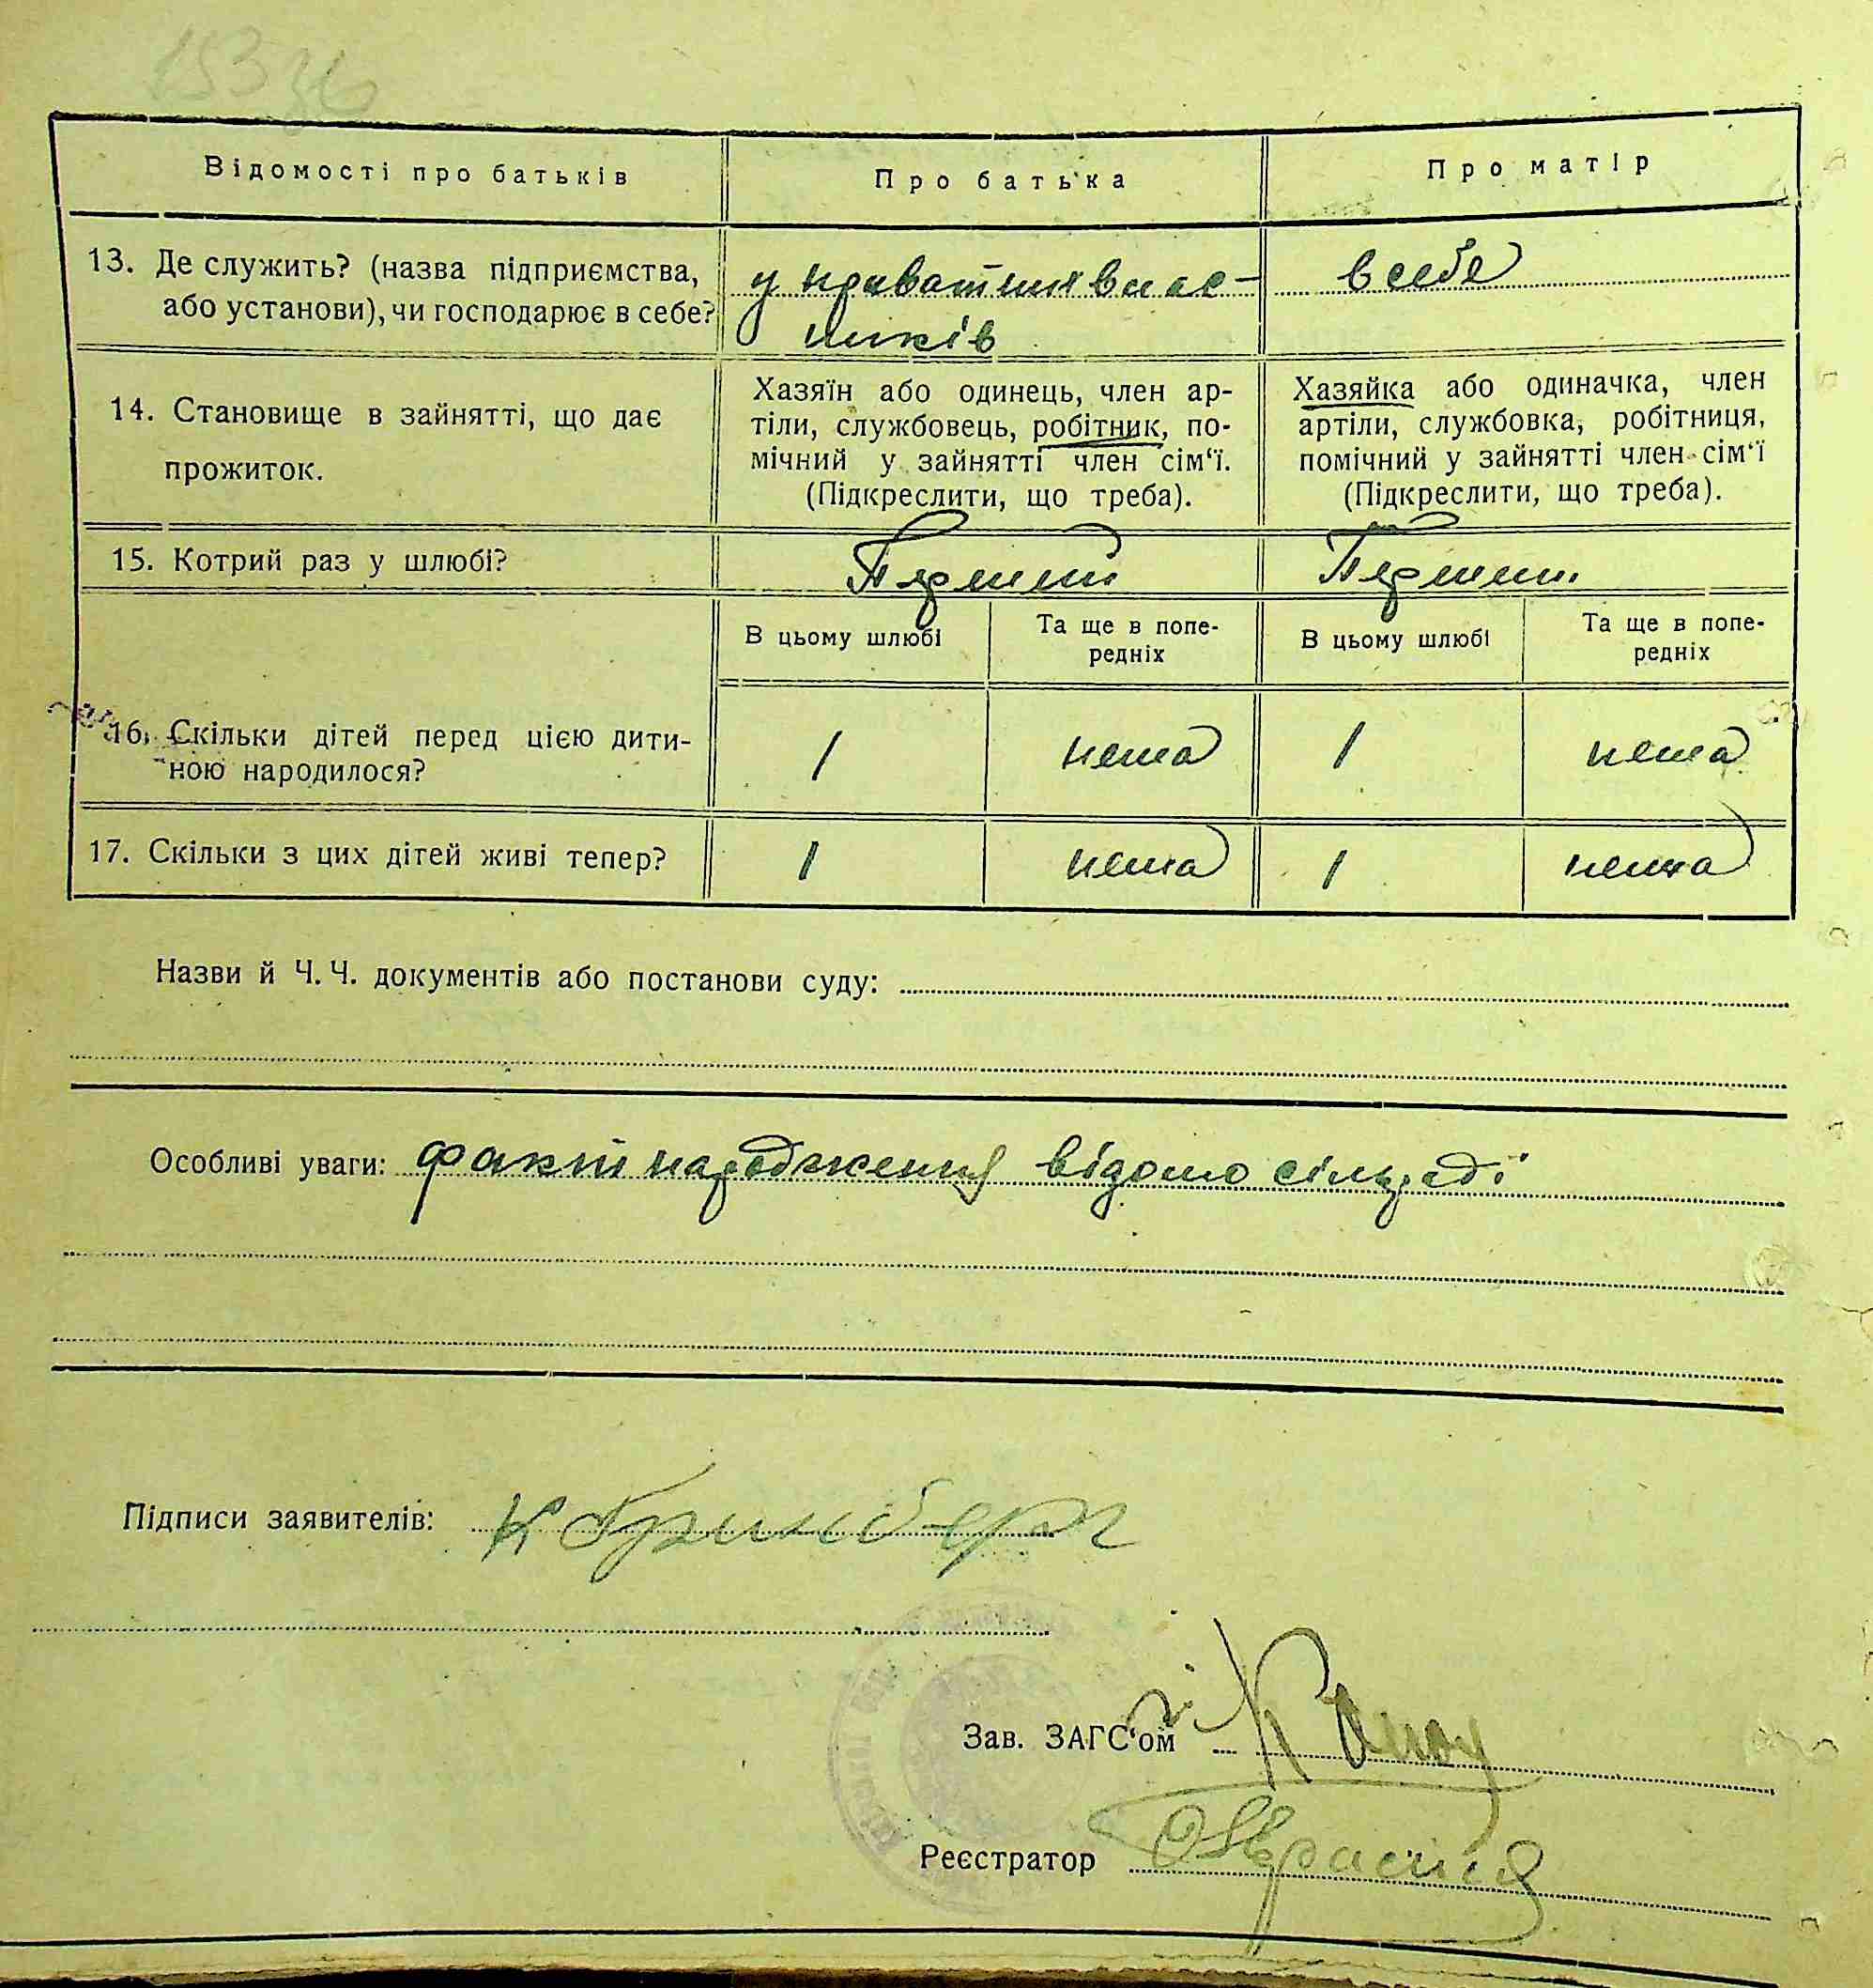 Відомості про батьків
Про батька
Про матір
13. Де служить? (назва підприємства,
або установи), чи господарює в себе?
у приватних влас-
ників
в себе
14. Становище в зайнятті, що дає
прожиток.
Хазяїн або одинець, член ар-
тіли, службовець, робітник, по-
мічний у зайнятті член сім‘ї.
(Підкреслити, що треба).
Хазяйка або одиначка, член
артіли, службовка, робітниця,
помічний у зайнятті член сім‘ї
(Підкреслити, що треба).
15. Котрий раз у шлюбі?
Перший
Перший
В цьому шлюбі
Та ще в попе-
редніх
В цьому шлюбі
Та ще в попе-
редніх
16. Скільки дітей перед цією дити-
ною народилося?
1
нема
1
нема
17. Скільки з цих дітей живі тепер?
1
нема
1
нема
Назви й Ч. Ч. документів або постанови суду:
Особливі уваги: факт народження відомо сільраді
Підписи заявителів: К Гринберг
Зав. ЗАГС‘ом
Реєстратор